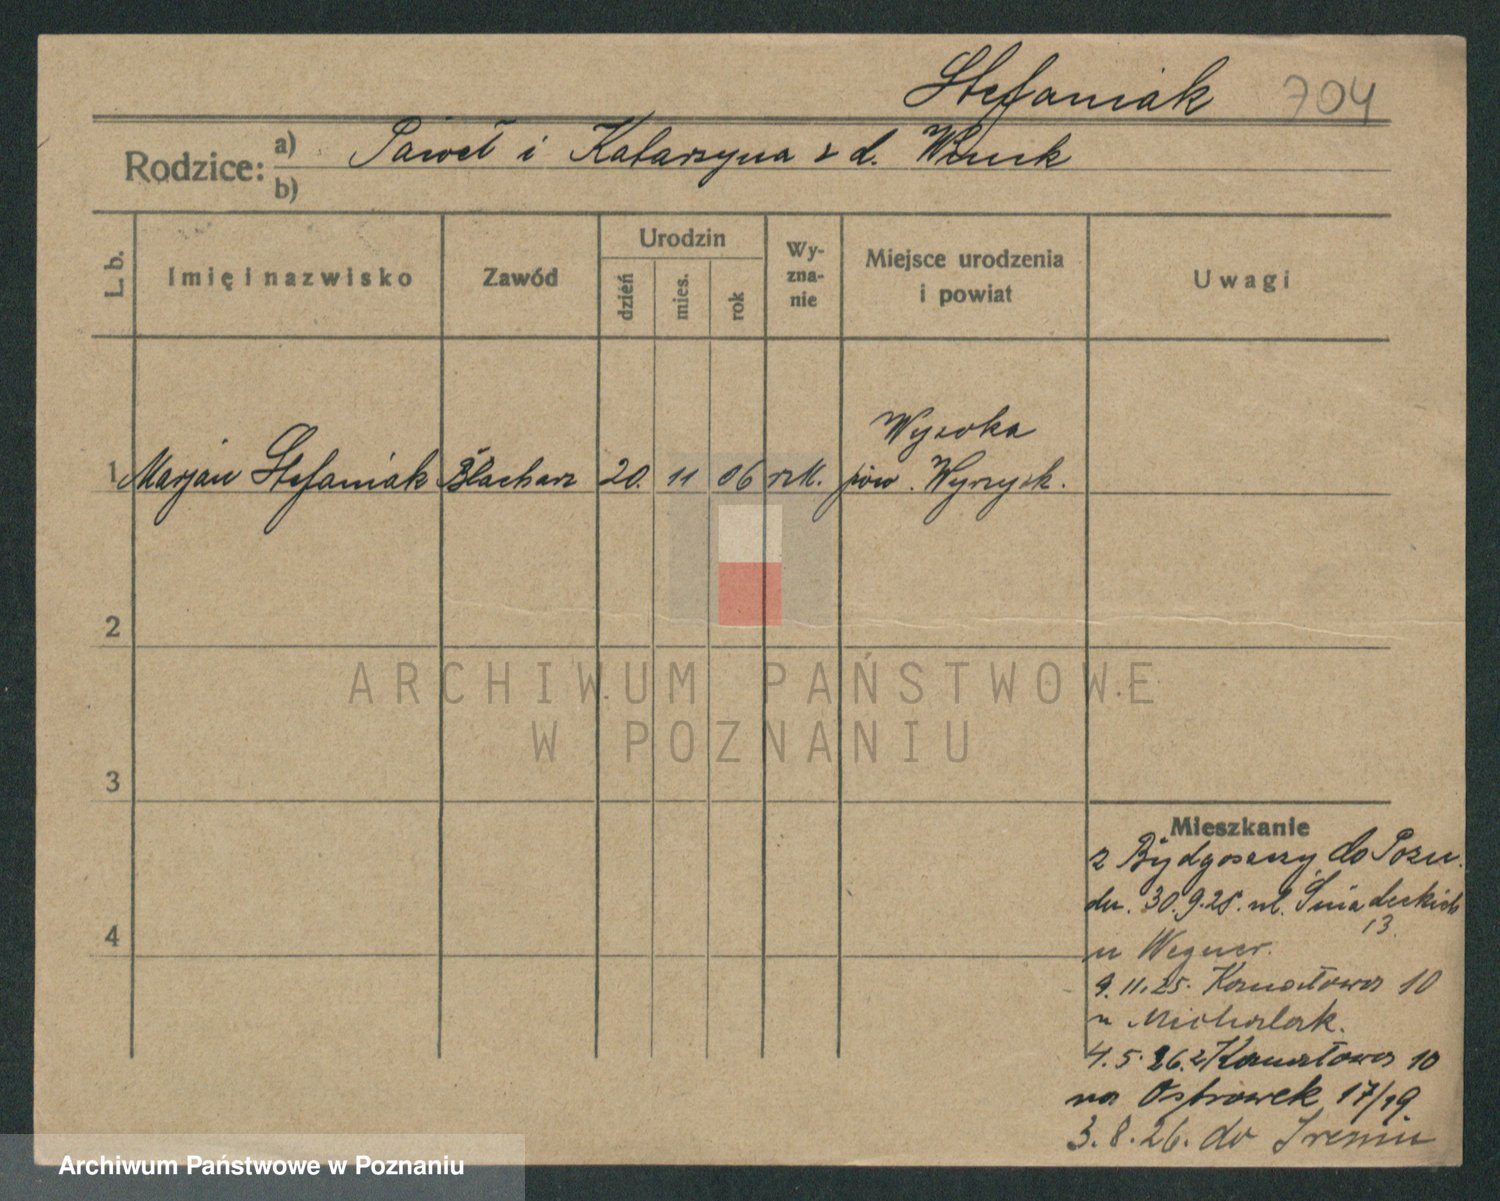 Stefaniak 704
Rodzice: a) Paweł i Katarzyna z d.
b)
L. b. Imię i nazwisko Zawód Urodzin dzień mies. rok Wy-zna-nie Miejsce urodzenia i powiat Uwagi
Wysoka
1 Marjan Stefaniak Blacharz 20. 11 06 rzk. pow. Wyrzysk.
2
ARCHIWUM PAŃSTWOWE
W POZNANIU
3
4
Mieszkanie
z Bydgoszczy do Pozn.
dn. 30.9.25. ul. Śniadeckich
13.
u Wegner.
9.11.25. Kanałowa 10
u Michalak.
4.5.26. z Kanałowa 10
na Ostrówek 17/19.
3.8.26. do Śremu
Archiwum Państwowe w Poznaniu